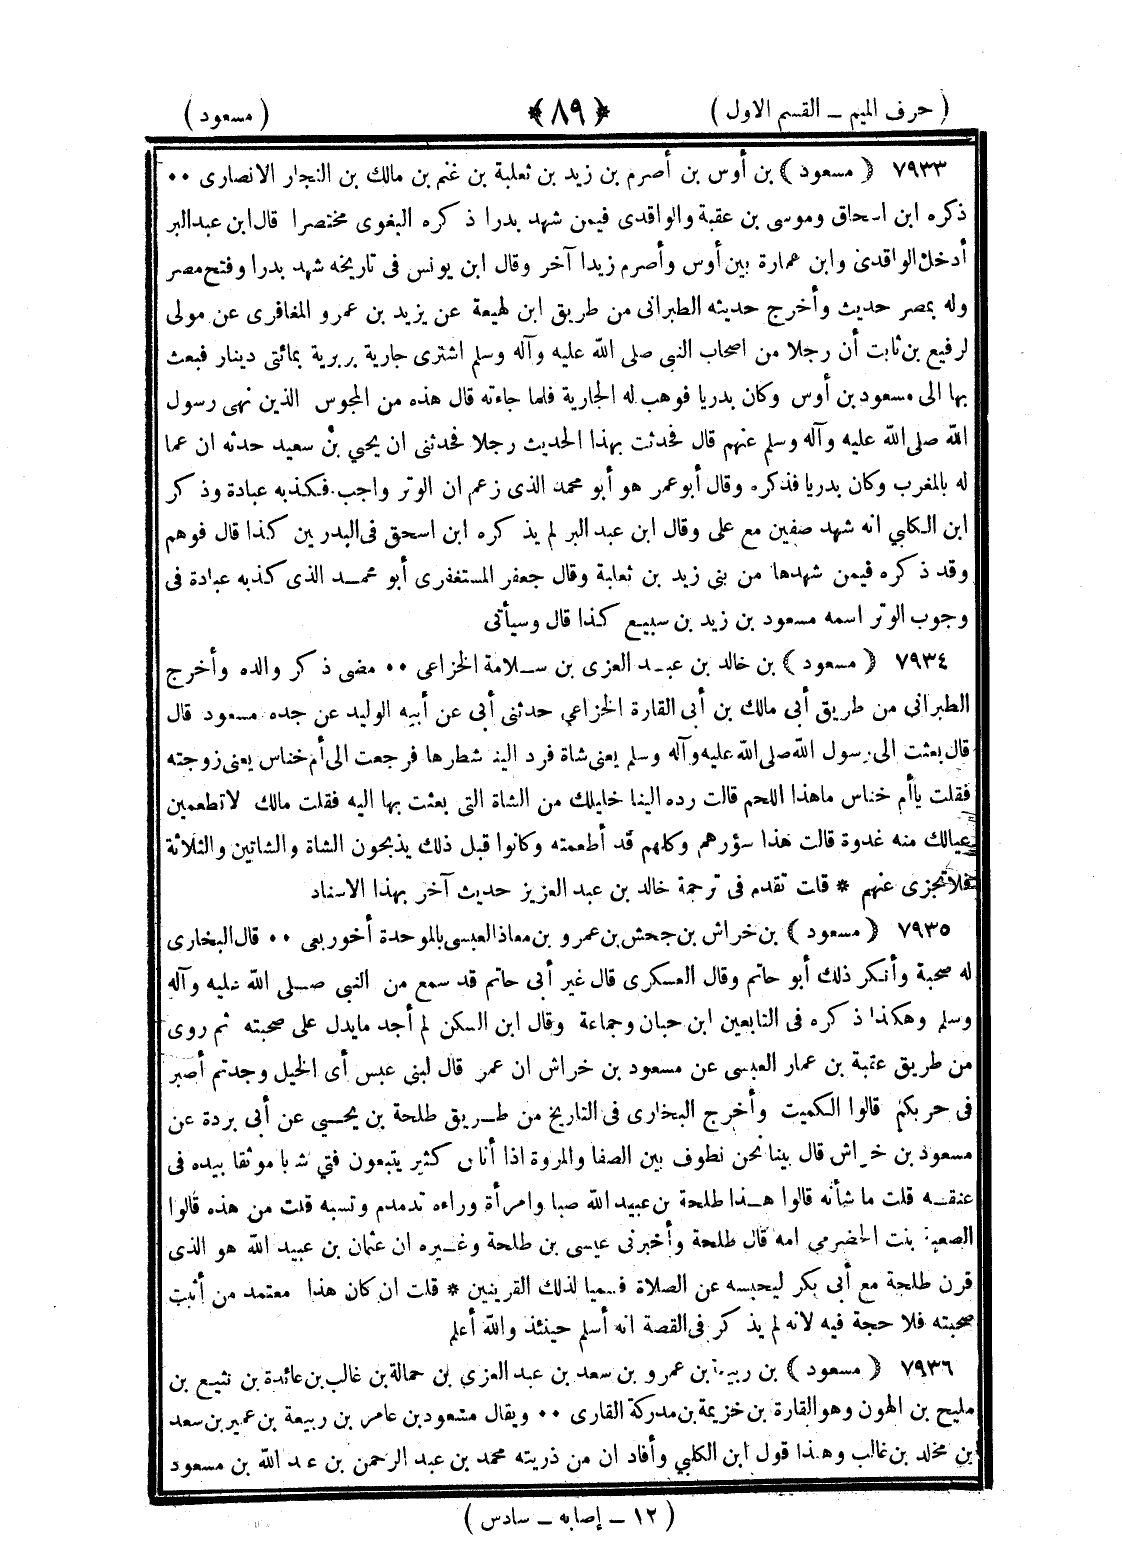 ( حرف الميم ــ القسم الاول ) ﴿ ٨٩ ﴾ ( مسعود )
٧٩٣٣ ( مسعود ) بن أوس بن أصرم بن زيد بن ثعلبة بن غنم بن مالك بن النجار الانصارى ٠٠
ذكره ابن اسحاق وموسى بن عقبة والواقدى فيمن شهد بدرا ذكره البغوى مختصرا قال ابن عبدالبر
أدخل الواقدى وابن عمارة بين أوس وأصرم زيدا آخر وقال ابن يونس فى تاريخه شهد بدرا وفتح مصر
وله بمصر حديث وأخرج حديثه الطبرانى من طريق ابن لهيعة عن يزيد بن عمرو المغافرى عن مولى
لرفيع بن ثابت أن رجلا من اصحاب النبى صلى الله عليه وآله وسلم اشترى جارية بربرية بمائتى دينار فبعث
بها الى مسعود بن أوس وكان بدريا فوهب له الجارية فلما جاءته قال هذه من المجوس الذين نهى رسول
الله صلى الله عليه وآله وسلم عنهم قال فحدثت بهذا الحديث رجلا فحدثنى ان يحيي بن سعيد حدثه ان عما
له بالمغرب وكان بدريا فذكره وقال أبو عمر هو أبو محمد الذى زعم ان الوتر واجب فكذبه عبادة وذكر
ابن الكلبي انه شهد صفين مع على وقال ابن عبد البر لم يذكره ابن اسحق فى البدريين كذا قال فوهم
وقد ذكره فيمن شهدها من بني زيد بن ثعلبة وقال جعفر المستغفرى أبو محمد الذى كذبه عبادة فى
وجوب الوتر اسمه مسعود بن زيد بن سبيع كذا قال وسيأتى
٧٩٣٤ ( مسعود ) بن خالد بن عبد العزى بن سلامة الخزاعى ٠٠ مضى ذكر والده وأخرج
الطبرانى من طريق أبى مالك بن أبى القارة الخزاعي حدثنى أبى عن أبيه الوليد عن جده مسعود قال
قال بعثت الى رسول الله صلى الله عليه وآله وسلم يعنى شاة فرد الينا شطرها فرجعت الى أم خناس يعنى زوجته
فقلت يا أم خناس ما هذا اللحم قالت رده الينا خليلك من الشاة التى بعثت بها اليه فقلت مالك لا تطعمين
عيالك منه غدوة قالت هذا سؤرهم وكلهم قد أطعمته وكانوا قبل ذلك يذبحون الشاة والشاتين والثلاثة
فلا تجزى عنهم * قلت تقدم فى ترجمة خالد بن عبد العزيز حديث آخر بهذا الاسناد
٧٩٣٥ ( مسعود ) بن خراش بن جحش بن عمرو بن معاذ العبسى بالموحدة أخو ربعى ٠٠ قال البخارى
له صحبة وأنكر ذلك أبو حاتم وقال العسكرى قال غير أبى حاتم قد سمع من النبى صلى الله عليه وآله
وسلم وهكذا ذكره فى التابعين ابن حبان وجماعة وقال ابن السكن لم أجد ما يدل على صحبته ثم روى
من طريق عتبة بن عمار العبسى عن مسعود بن خراش ان عمر قال لبنى عبس أى الخيل وجدتم أصبر
فى حربكم قالوا الكميت وأخرج البخارى فى التاريخ من طريق طلحة بن يحيي عن أبى بردة عن
مسعود بن خراش قال بينا نحن نطوف بين الصفا والمروة اذا أناس كثير يتبعون فتي شابا موثقا بيده فى
عنقه قلت ما شأنه قالوا هذا طلحة بن عبيد الله صبا وامرأة وراءه تدمدم وتسبه قلت من هذه قالوا
الصعبة بنت الحضرمي امه قال طلحة وأخبرنى عيسى بن طلحة وغيره ان عثمان بن عبيد الله هو الذى
قرن طلحة مع أبى بكر ليحبسه عن الصلاة فسميا لذلك القرينين * قلت ان كان هذا معتمد من أثبت
صحبته فلا حجة فيه لانه لم يذكر فى القصة انه أسلم حينئذ والله أعلم
٧٩٣٦ ( مسعود ) بن ربيعة بن عمرو بن سعد بن عبد العزى بن حمالة بن غالب بن عائدة بن نثيع بن
مليح بن الهون وهو القارة بن خزيمة بن مدركة القارى ٠٠ ويقال مسعود بن عامر بن ربيعة بن عمير بن سعد
بن مخلد بن غالب وهذا قول ابن الكلبي وأفاد ان من ذريته محمد بن عبد الرحمن بن عبد الله بن مسعود
( ١٢ ــ إصابه ــ سادس )